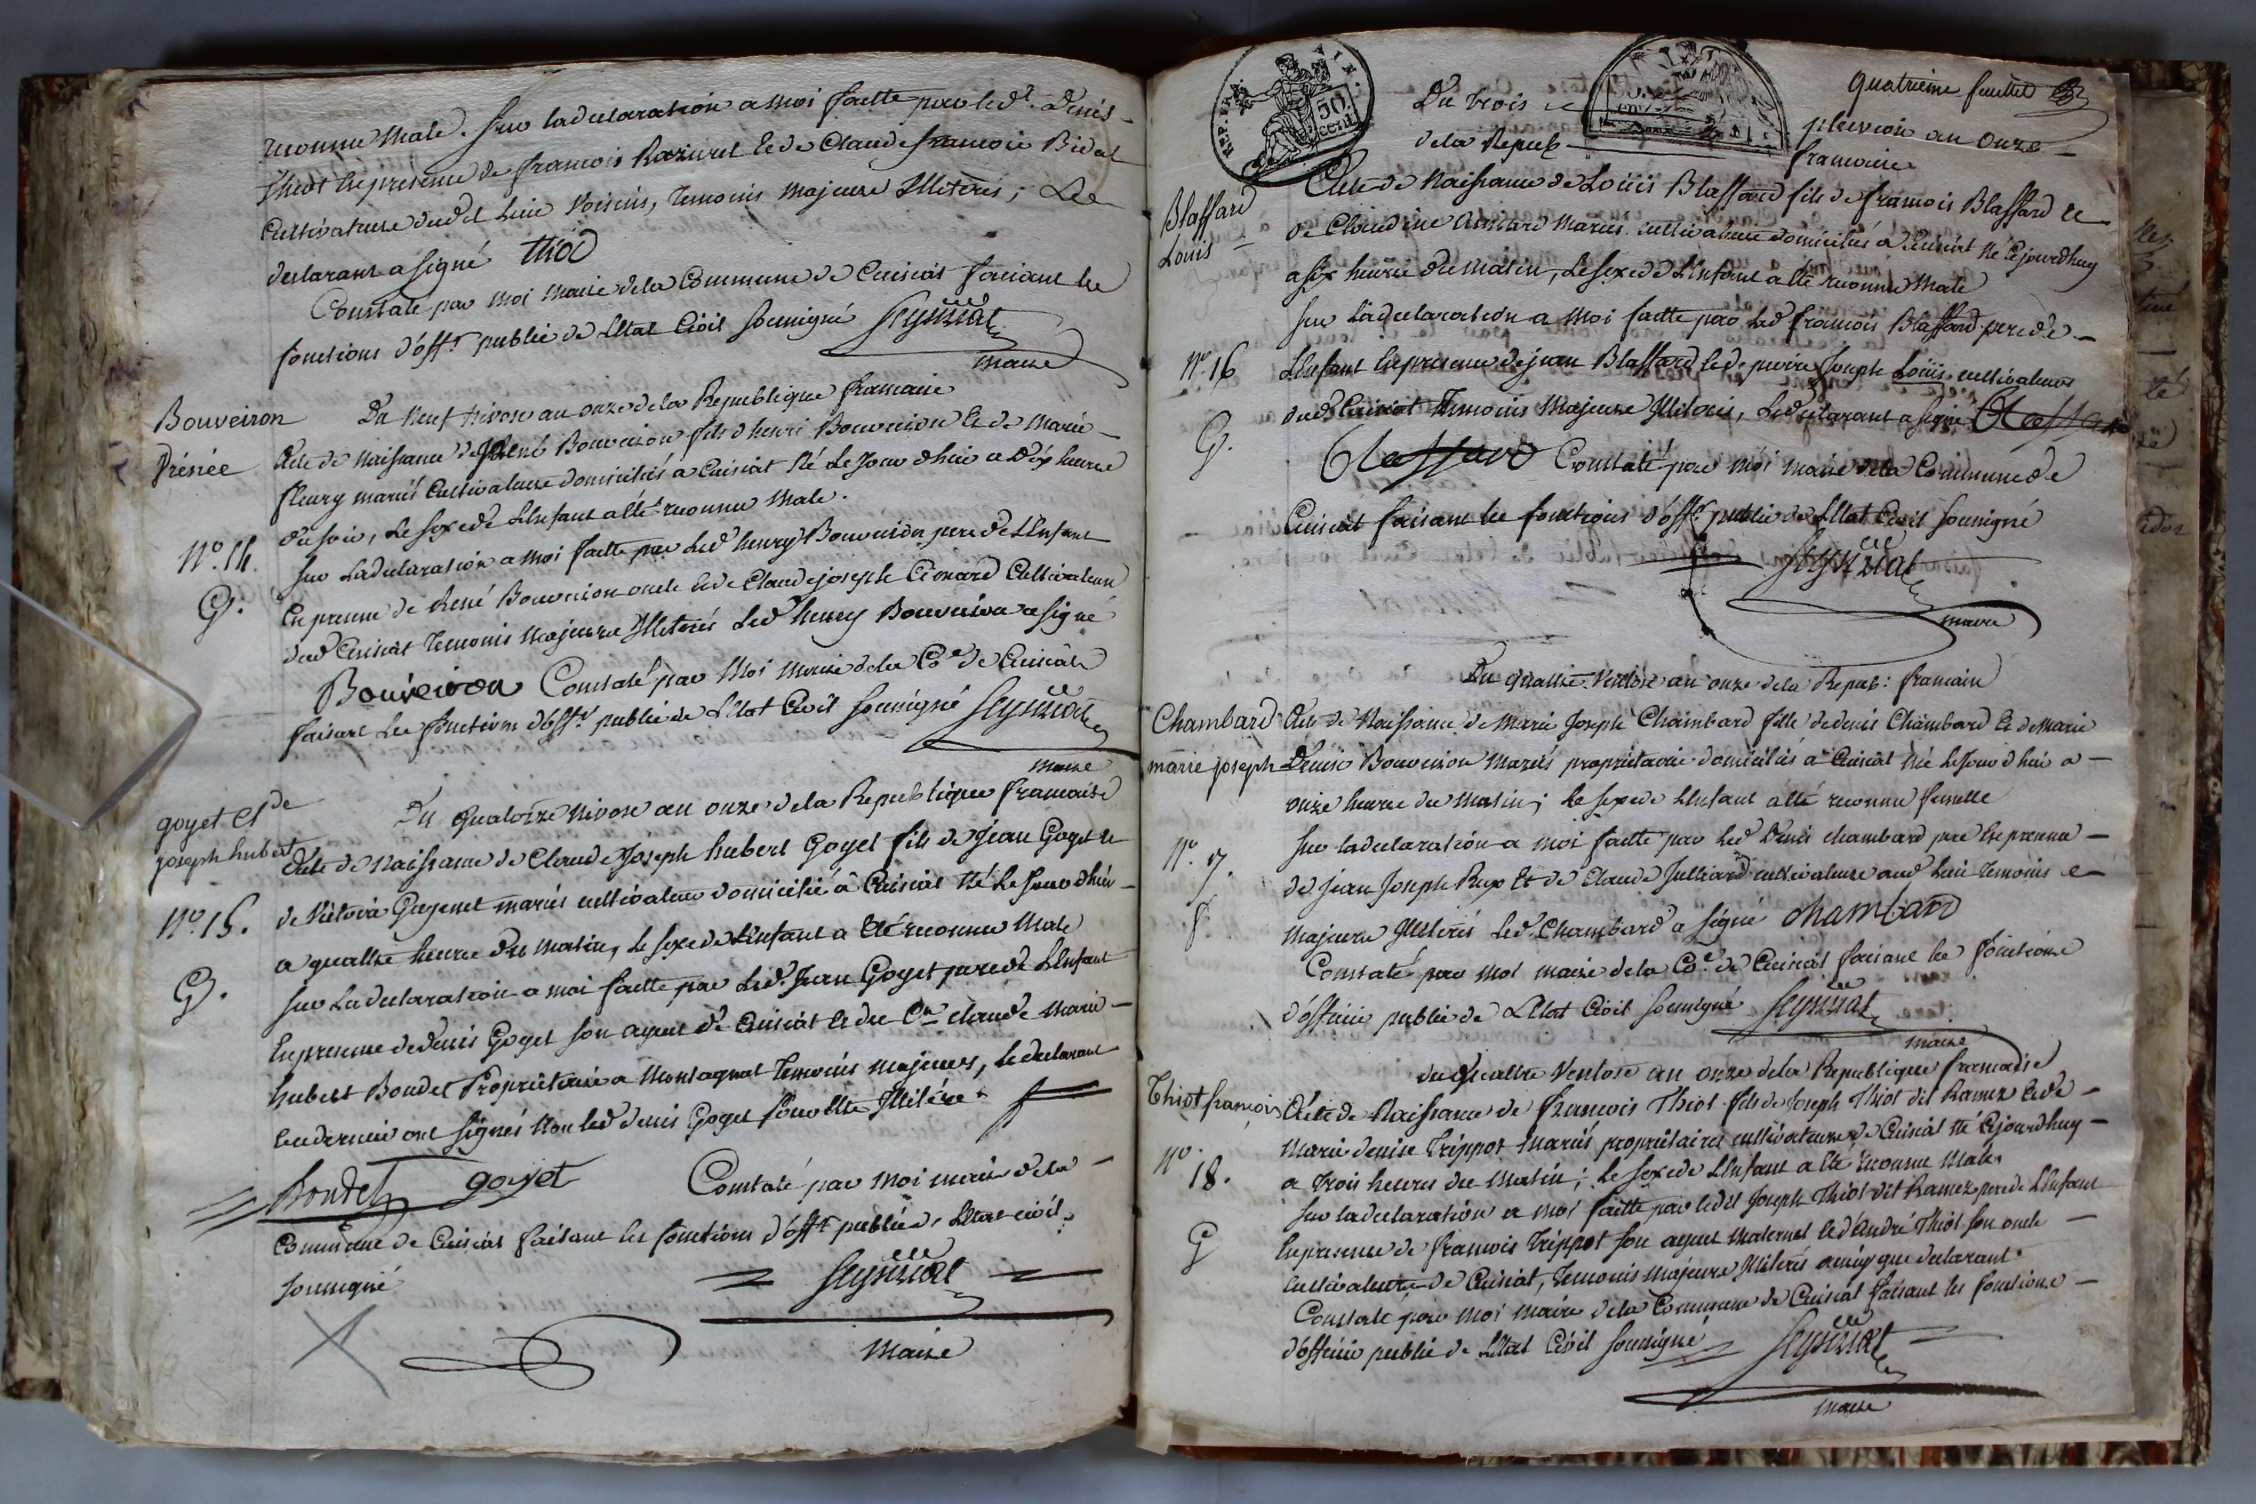 reconnu male. Sur la declaration a moi faitte par led.t Denis
thiot En presence de francois Razuret Et de Claude francois Bidat
Cultivateurs dud.t Lieu voisins, temoins majeurs Illiterés; Le
declarant a signé thiot
Constaté par moi maire de la Commune de Cuisiat faisant les
fonctions d'off.r public de L'Etat Civil soussigné
maire
Bouveiron
Rénée
N.o 14.
G.
Du neuf nivose an onze de la Republique francaise
Acte de Naissance de René Bouveiron fils d'henri Bouveiron Et de Marie
fleury mariés Cultivateurs domiciliés a Cuisiat Né Le Jour d'hui a Dix heures
du soir, Le sexe de L'Enfant a été reconnu Male.
Sur La declaration a moi faitte par Led. henry Bouveiron pere de L'Enfant
En presence de René Bouveiron oncle Et de Claude joseph Cionard Cultivateurs
dud Cuisiat Temoins majeurs Illiterés Led. henry Bouveiron a signé
Bouveiron Constaté par Moi Maire de la Co.e de Cuisiat
faisant Les fonctions d'off.r public de L'Etat Civil soussigné
maire
goyet Cl.de
joseph hubert
N.o 15.
G.
Du quatorze Nivose an onze de la Republique francaise
Acte de Naissance de Claude Joseph hubert Goyet fils de Jean Goyet et
de Victoire Guyenet mariés cultivateurs domicilié à Cuisiat Né Le Jour d'hui
a quattre heures du matin, Le sexe de L'Enfant a Eté reconnu Male
Sur La declaration a moi faitte par Led. Jean Goyet pere de L'Enfant
En presence de denis Goyet son ayeul de Cuisiat et du C.en claude Marie
hubert Bondet Proprietaire a Montagnat Temoins majeurs, le declarant
Et ce dernier ont signés Non led denis Goyet pour Etre Illiteré
Bondet goyet
Constaté par moi maire de la
Commune de Cuisiat faisant les fonctions d'off.r public de L'Etat civil
soussigné
Maire
quatrieme feuillet
REP. FRA.
50. cent.
Du trois
pluviose an onze
de la Repub
francaise
Blaffard
Louis
N.o 16
G.
Acte de Naissance de Loüis Blaffard fils de francois Blaffard et
de Claudine mariés cultivateurs domiciliés a Cuisiat Né Cejourdhuy
a six heures du Matin, Le sexe de L'Enfant a été reconnu Male
Sur La declaration a Moi faitte par Led francois Blaffard pere de
L'Enfant En presence de jean Blaffard et de pierre Joseph Loüis cultivateurs
dud Cuisiat Temoins Majeurs Illiterés, Le declarant a signé Blaffard
Blaffard Constaté par Moi maire de la Commune de
Cuisiat faisant les fonctions d'off.r public de L'Etat Civil soussigné
maire
Du quattre Ventose an onze de la Repub: francaise
Chambard
marie joseph
N.o 17.
f.
Acte de Naissance de Marie Joseph Chambard fille de denis Chambard Et de Marie
Denise Bouveiron Mariés proprietaires domiciliés a Cuisiat Né Le Jour d'hui a
onze heures du Matin; Le sexe de L'Enfant a été reconnu femelle
Sur la declaration a moi faitte par Led Denis chambard pere En presence
de Jean Joseph Rux Et de Claude Julliard cultivateurs aud Lieu Temoins
Majeurs Illiterés Led Chambard a signé chambard
Constaté par Moi maire de la Co.e de Cuisiat faisant les fonctions
d'officier public de L'Etat Civil soussigné
maire
du quattre Ventose an onze de la Republique francaise
Thiot françois
N.o
18.
G
Acte de Naissance de francois Thiot fils de Joseph Thiot dit Ramez Et de
Marie denise Trippoz Mariés proprietaires cultivateurs de Cuisiat Né Cejourdhuy
a trois heures du Matin; Le sexe de L'Enfant a Eté reconnu Male
Sur la declaration a moi faitte par ledit Joseph Thiot dit Ramez pere de L'Enfant
En presence de francois Trippoz son ayeul maternel et d'André Thiot son oncle
Cultivateurs de Cuisiat, Temoins Majeurs Illiterés ainsy que declarant
Constaté par Moi Maire de la Commune de Cuisiat faisant les fonctions
d'officier public de L'Etat Civil soussigné
maire